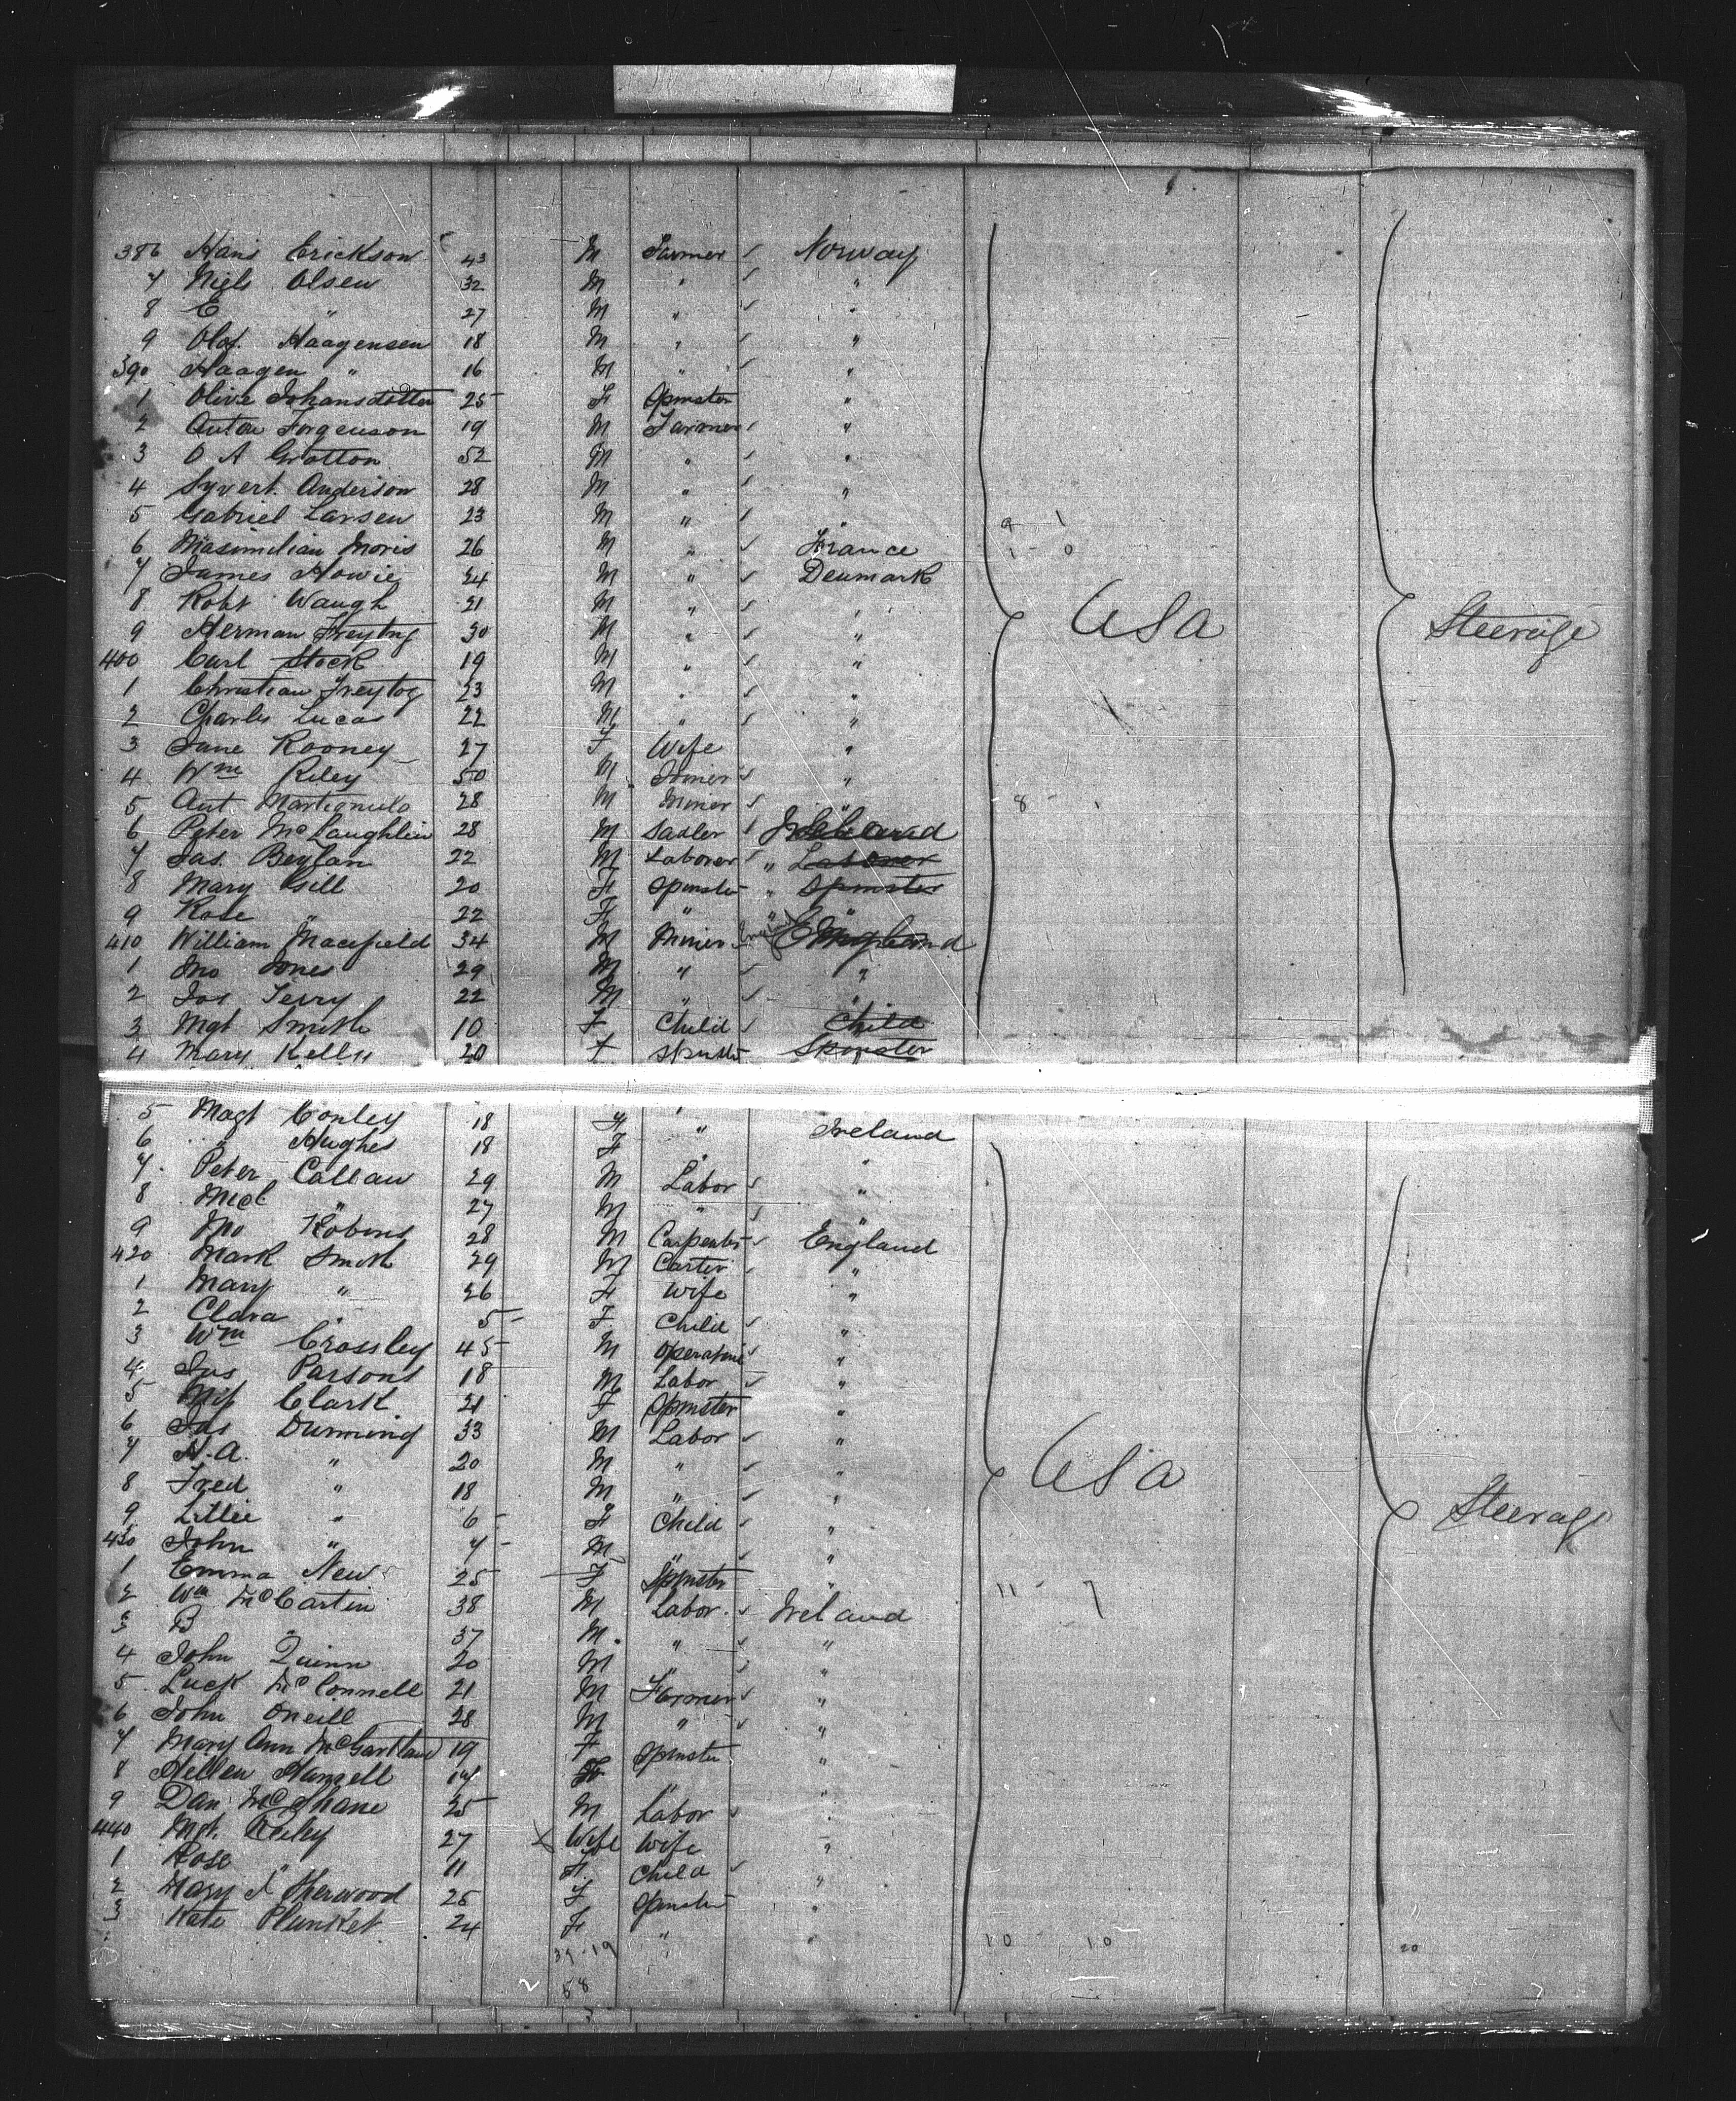 386 Hans Erickson 43 M Farmer ✓ Norway
7 Niels Olsen 32 M " ✓ "
8 E " 27 M " ✓ "
9 Olof. Haagensen 18 M " ✓ "
390 Haagen " 16 M " ✓ "
1 Olive Johansdotter 25 F Spinster "
2 Anton Jorgenson 19 M Farmer ✓ "
3 O A Grotton 52 M " ✓ "
4 Syvert. Anderson 28 M " ✓ "
5 Gabriel Larsen 23 M " ✓ "
6 Masimilian Moris 26 M " ✓ France
7 James Howie 24 M " ✓ Denmark
8 Robt Waugh 21 M " ✓ "
USA Steerage
9 Herman Freytag 30 M " ✓ "
400 Carl Stock 19 M " ✓ "
1 Christian Freytog 23 M " ✓ "
2 Charles Lucas 22 M " ✓ "
3 Jane Rooney 27 F Wife "
4 Wm Riley 50 M Joiner ✓ "
5 Ant. 28 M Miner ✓ "
6 Peter McLaughlin 28 M Sadler ✓ Ireland
7 Jas. Boylan 22 M Laborer ✓ " Laborer
8 Mary Gill 20 F Spinster " Spinster
9 Rose " 22 F " "
410 William Macefield 34 M Miner ✓ England
1 Jno Jones 29 M " ✓ "
2 Jos Terry 22 M " ✓ "
3 Mgt Smith 10 F Child ✓ Child
4 Mary Kelly 20 F Spinster Spinster
5 Magt Conley 18 F " Ireland
6 " Hughes 18 F " "
7 Peter Callan 29 M Labor ✓ "
8 Micl " 27 M " ✓ "
9 Jno Robins 28 M Carpenter ✓ England
420 Mark Smith 29 M Carter ✓ "
1 Mary " 26 F Wife "
2 Clara " 5 F Child ✓ "
3 Wm Crossley 45 M Operative "
4 Jas Parsons 18 M Labor ✓ "
5 Clark 21 F Spinster "
6 Jas Dunning 33 M Labor ✓ "
7 H. A. " 20 M " ✓ "
USA
8 Fred " 18 M " ✓ "
Steerage
9 Lillie " 6 F Child ✓ "
430 John " 4 M " ✓ "
1 Emma New 25 F Spinster "
2 Wm McCartin 38 M Labor ✓ Ireland
3 B " 37 M " ✓ "
4 John Quinn 20 M " ✓ "
5 Luck McConnell 21 M Farmer ✓ "
6 John Oneill 28 M " ✓ "
7 Mary Ann McGartland 19 F Spinster "
8 Hellen 14 F " "
9 Dan McShane 25 M Labor ✓ "
440 Mgt. Reiley 27 X Wife Wife "
1 Rose " 11 F Child ✓ "
2 Mary J Sherwood 25 F Spinster "
3 Kate Plunket 24 F " "
39-19 10 10 20
2 58